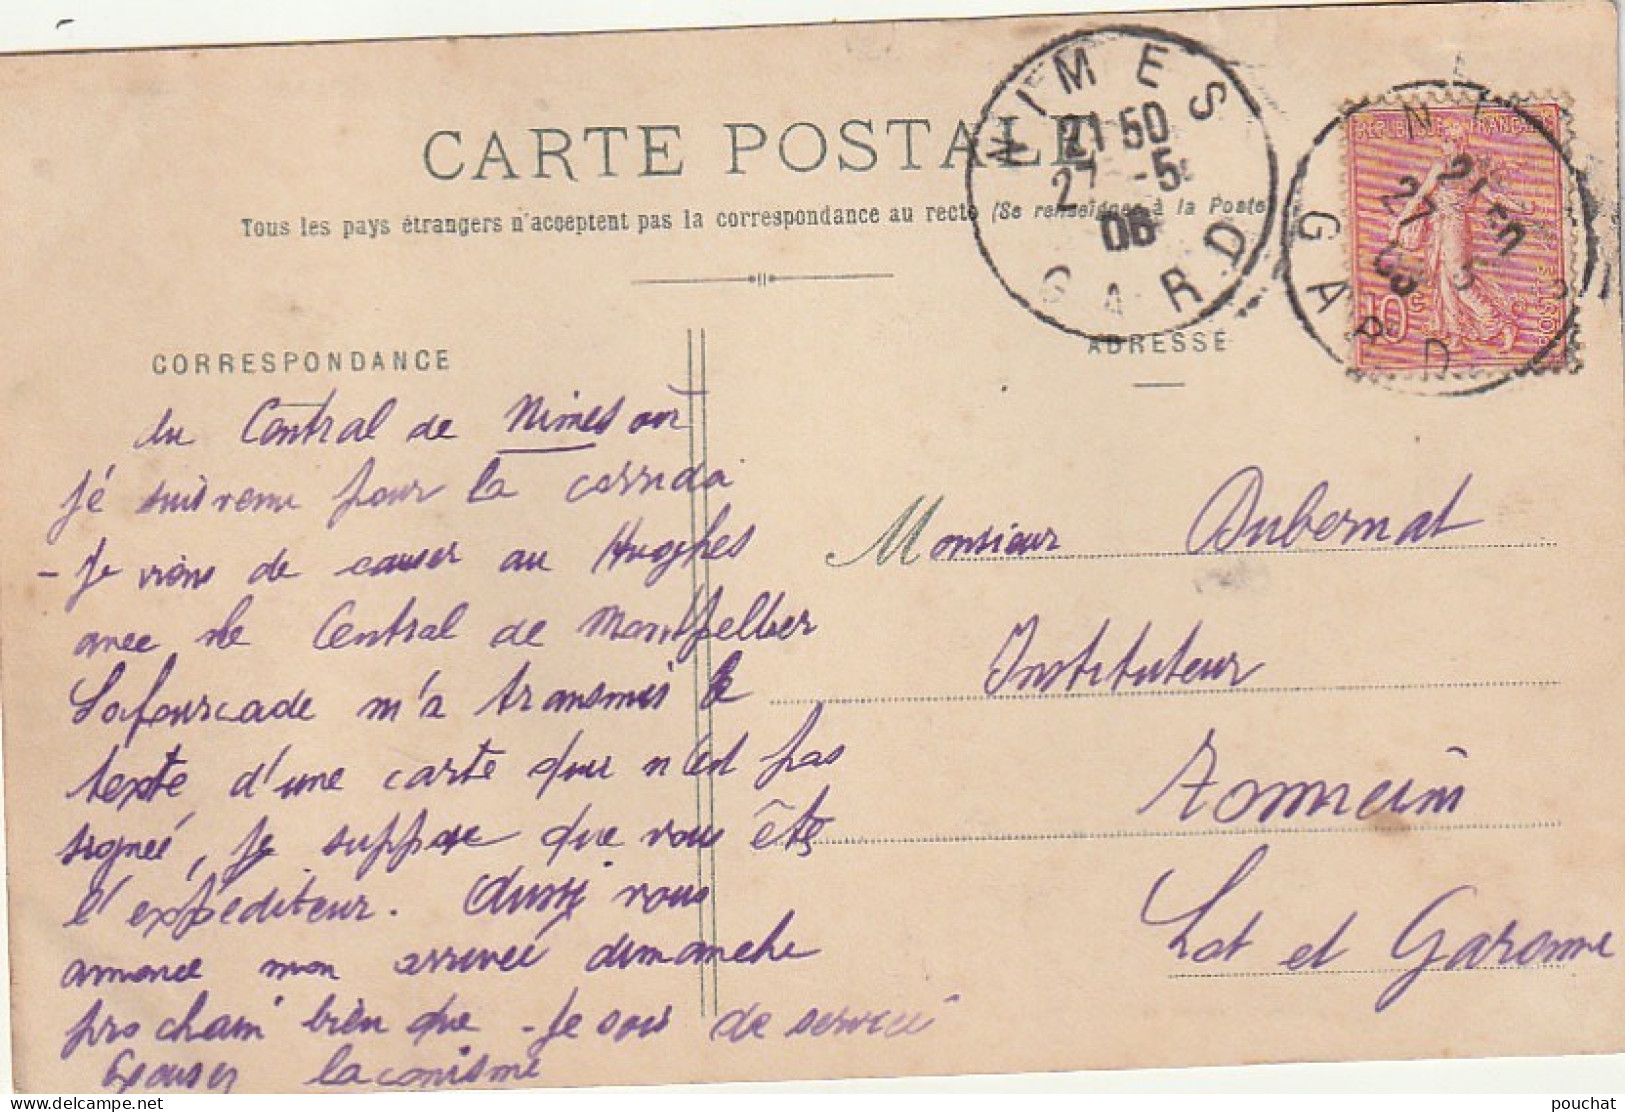 CARTE POSTALE
Tous les pays étrangers n'acceptent pas la correspondance au recto (Se renseigner à la Poste
NIMES
21 50
27 -5
06
GARD
REPUBLIQUE FRANÇAISE
10c
POSTES
NI
21 50
27 5
GARD
CORRESPONDANCE
du Central de Nimes où
Jé suis venu pour la corrida
- Je viens de causer au Hughes
avec le Central de Montpellier
Lafourcade m'a transmis le
texte d'une carte qui n'est pas
signeé, je suppose que vous êtes
l'expéditeur. Aussi vous
annonce mon arriveé dimanche
prochain bien que Je sois de service
Excusez laconisme
ADRESSE
Monsieur Dubernat
Instituteur
Tonneins
Lot et Garonne
delcampe.net
pouchat